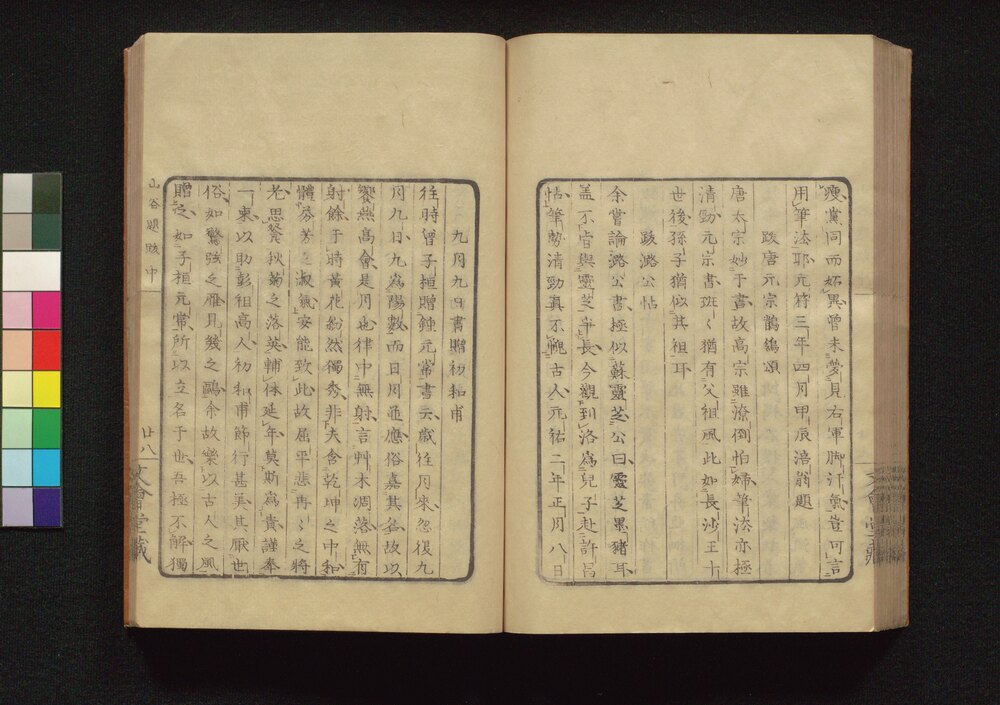 瘦黨同而妬異曾未夢見右軍脚汗氣豈可言
用筆法耶元符三年四月甲辰涪翁題
跋唐元宗鶺鴒頌
唐太宗妙于書故高宗雖潦倒怕婦筆法亦極
清勁元宗書班〱猶有父祖風此如長沙王十
世後孫子猶似其祖耳
跋潞公帖
余嘗論潞公書極似蘇靈芝公曰靈芝墨豬耳
蓋不肯與靈芝爭長今觀到洛為兒子赴許昌
帖筆勢清勁真不愧古人元祐二年正月八日
九月九日書贈初和甫
往時曾子桓贈鍾元常書云歲往月來忽復九
月九日九為陽數而日月並應俗嘉其名故以
饗燕高會是月也律中無射言艸木凋落無有
射餘于時黃花紛然獨秀非夫含乾坤之中和
體芬芳之淑氣安能致此故屈平悲冉〻之將
老思飱秋菊之落英輔体延年莫斯為貴謹奉
一束以助彭祖高人初和甫節行甚美其厭世
俗如驚弦之雁見幾之鷗余故樂以古人之風
贈之如子桓元常所以立名于世吾極不解獨
山谷題跋中
廿八
文會堂藏